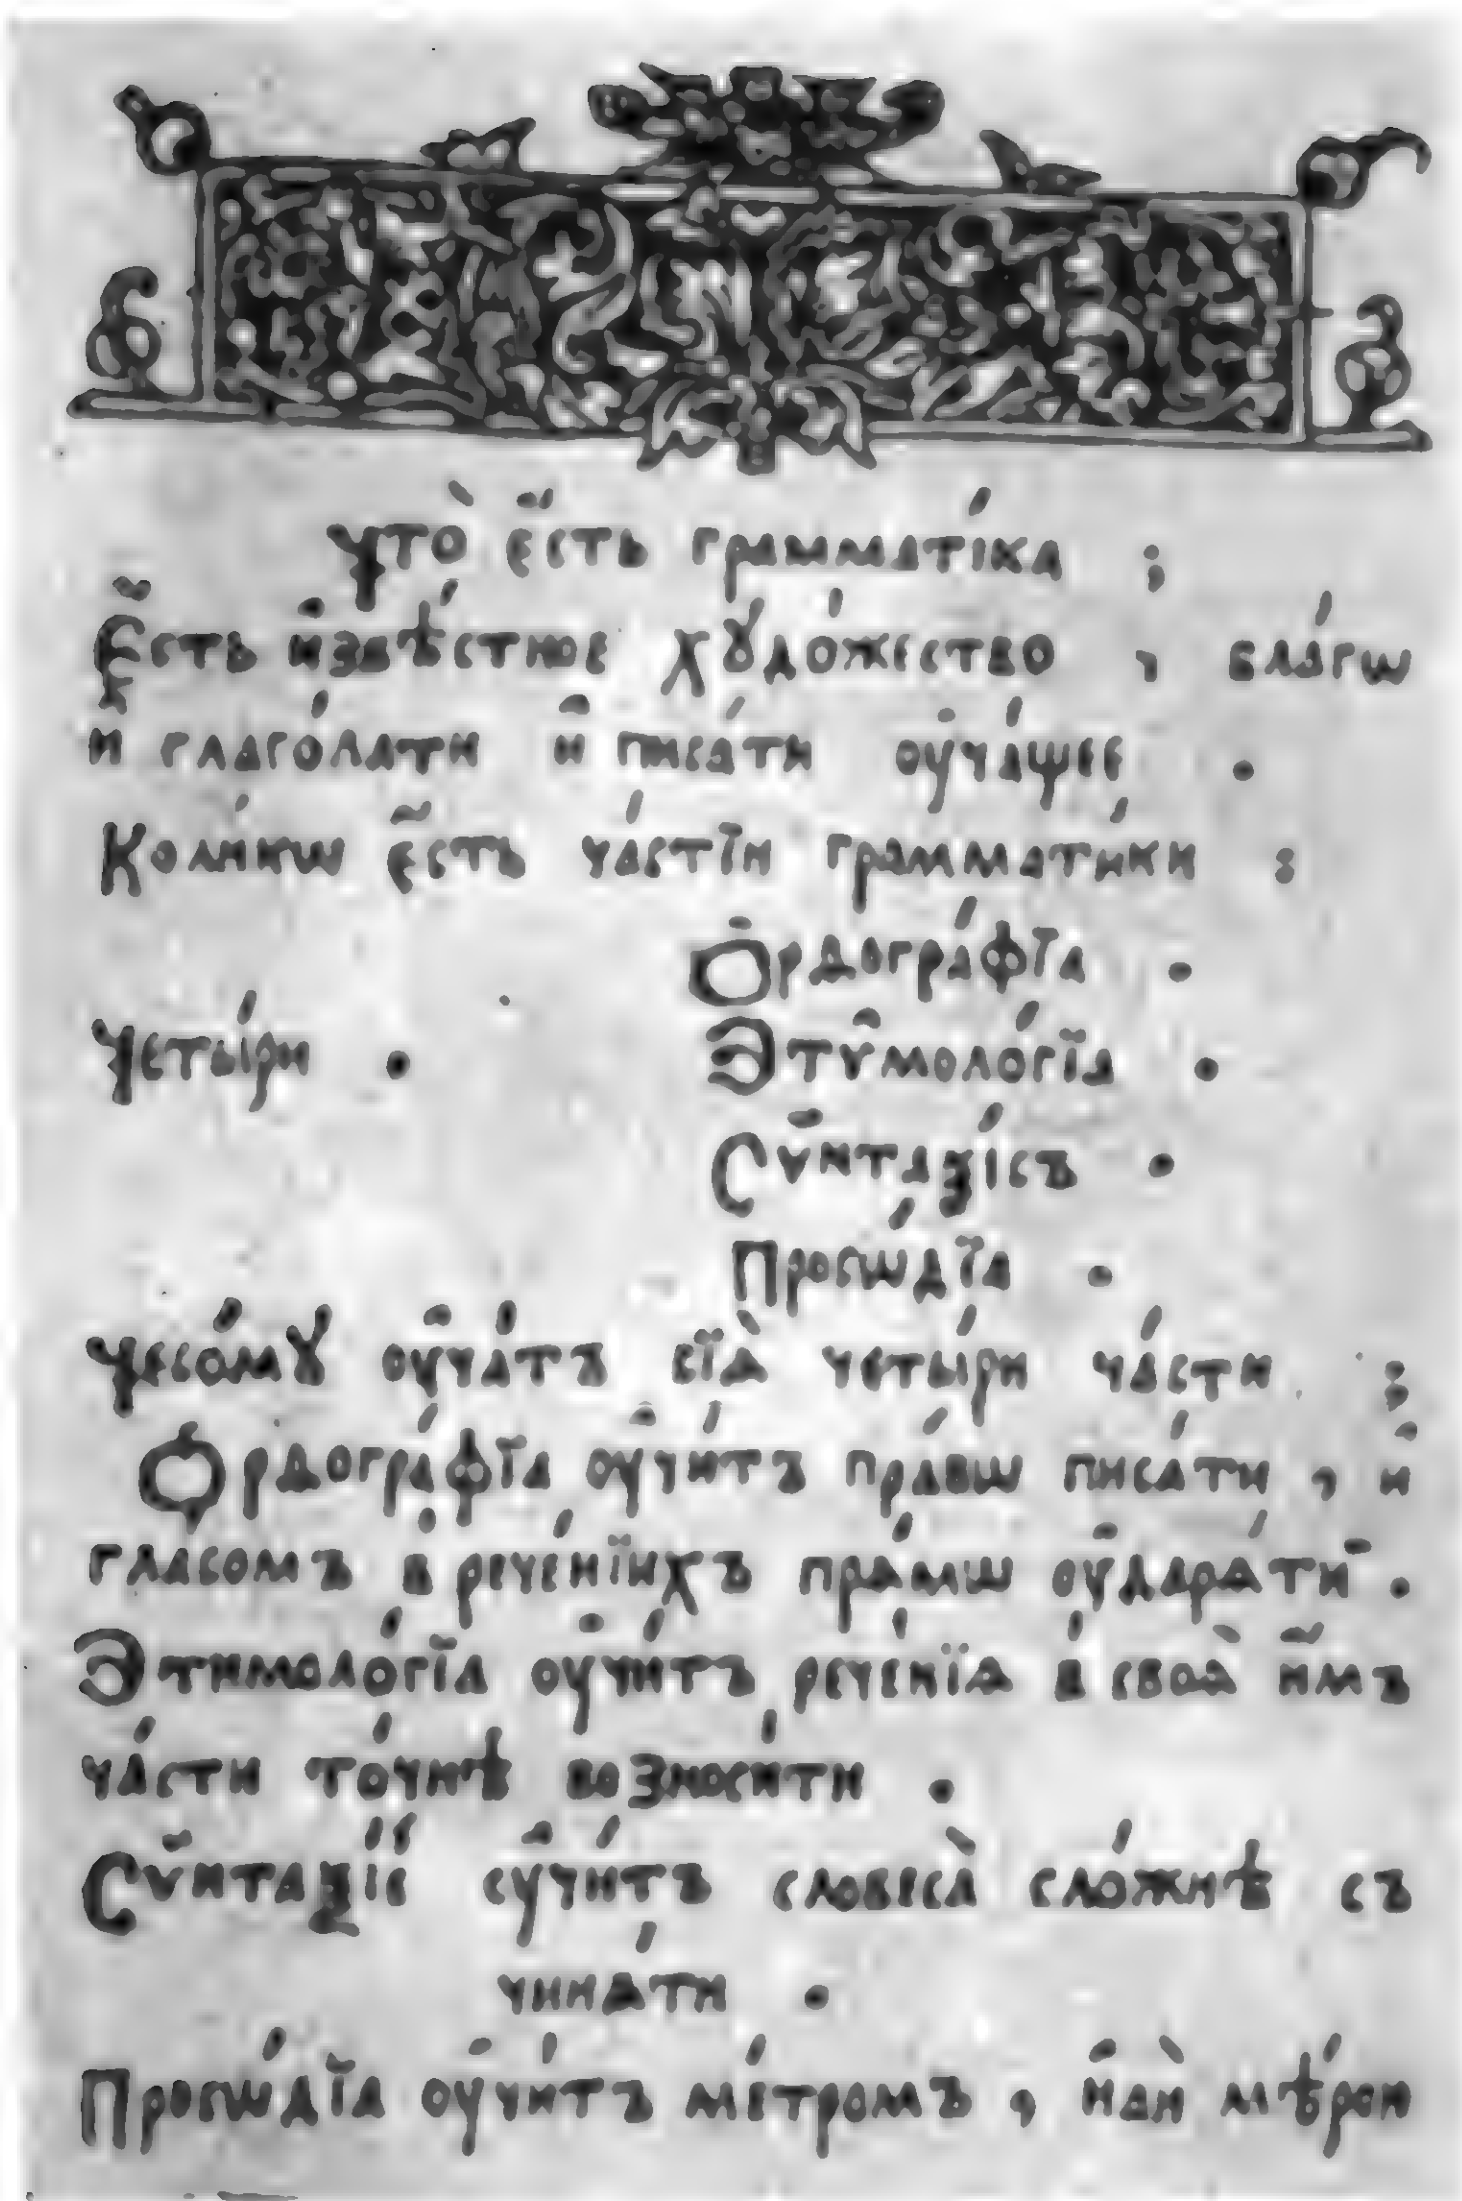 Что̀ є҆́сть грамматі́ка ;
Є҆́сть и҆звѣ́стное хꙋдо́жество , бла́гѡ
и҆ глаго́лати и҆ писа́ти ᲂу҆ча́щее .
Коли́кѡ є҆́сть ча́стїи грамма́тики :
Ѻ҆рдогра́фїа .
Четы́ри . Э҆тѷмоло́гїа .
Сѷнта́ѯісъ .
Просѡ́дїа .
Чесо́мꙋ ᲂу҆ча́тъ сїѧ̀ четы́ри ча́сти ;
Ѻ҆рдогра́фїа ᲂу҆чи́тъ пра́вѡ писа́ти , и҆
гла́сомъ в̾ рече́нїихъ пра́мѡ ᲂу҆дарѧ́ти .
Э҆тимоло́гїа ᲂу҆чи́тъ рече́нїѧ в̾ своѧ̀ и҆̀мъ
ча́сти то́чнѣ возноси́ти .
Сѷнта́ѯіс ᲂу҆чи́тъ словеса̀ сло́жнѣ съ
чинѧ́ти .
Просѡ́дїа ᲂу҆чи́тъ ме́тромъ , и҆лѝ мѣ́рои